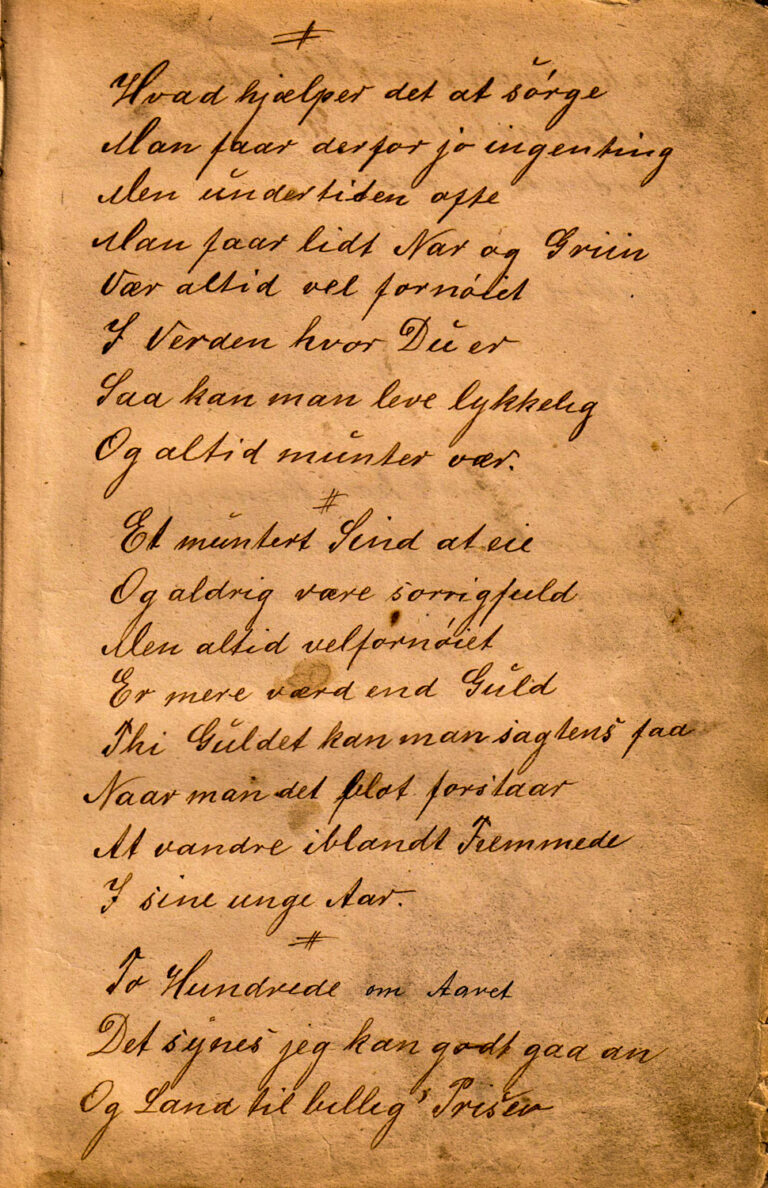 Hvad hjælper det at sörge
Man faar derfor jo ingenting
Men undertiden ofte
Man faar lidt Nar og Griin
Vær altid vel fornöiet
I Verden hvor Du er
Saa kan man leve lykkelig
Og altid munter vær.
Et muntert Sind at eie
Og aldrig være sorrigfuld
Men altid velfornöiet
Er mere værd end Guld
Thi Guldet kan man sagtens faa
Naar man det blot forstaar
At vandre iblandt Fremmede
I sine unge Aar.
To Hundrede om Aaret
Det synes jeg kan godt gaa an
Og Land til billig's Priser